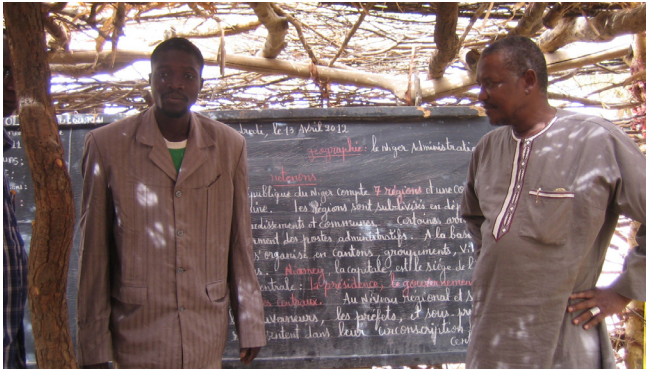 credi, le 13 Avril 2012
geographie: le Niger Administratif
retenons
épublique du Niger compte 7 régions et une co
aine. Les régions sont subdivisés en dép
ondissements et communes. Certaines arro
ment des postes administratifs. A la base
s'organise en cantons, groupements, vil
Niamey la capitale, est le siège de l
centrale: la présidence, le gouvernement
Au niveau regional et s
ouverneurs, les préfets, et sous pré
sentent dans leur circonscription
cen